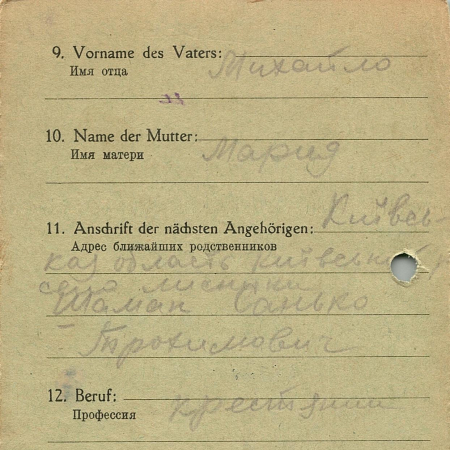 9. Vorname des Vaters: Михайло
Имя отца
10. Name der Mutter: Мария
Имя матери
11. Anschrift der nächsten Angehörigen: Київсь-
Адрес ближайших родственников
кая область Київський
село
Шаман Санько
Трохимович
12. Beruf: крестянин
Профессия